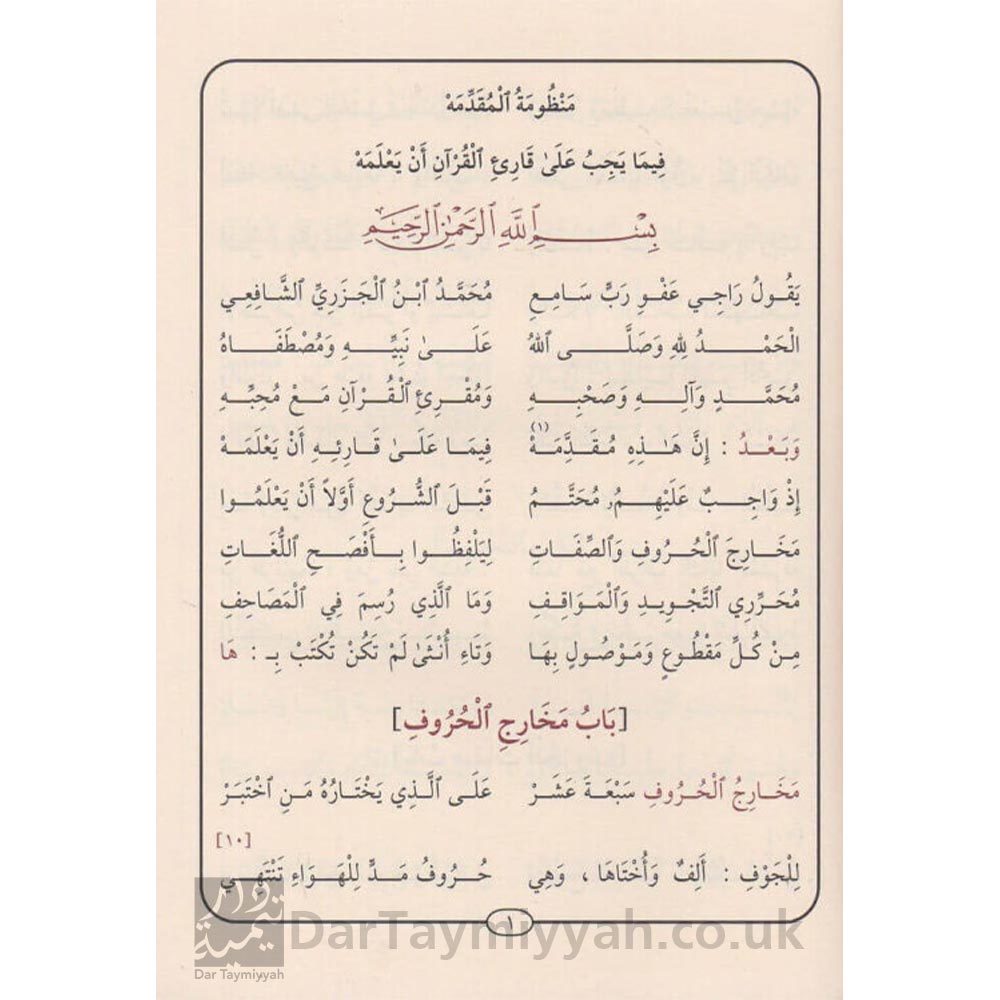 مَنْظُومَةُ ٱلْمُقَدِّمَهْ
فِيمَا يَجِبُ عَلَىٰ قَارِئِ ٱلْقُرْآنِ أَنْ يَعْلَمَهْ
بِسْمِ ٱللَّهِ ٱلرَّحْمَٰنِ ٱلرَّحِيمِ
يَقُولُ رَاجِي عَفْوِ رَبٍّ سَامِعِ مُحَمَّدُ ٱبْنُ ٱلْجَزَرِيِّ ٱلشَّافِعِي
الْحَمْدُ لِلهِ وَصَلَّى ٱللهُ عَلَىٰ نَبِيِّهِ وَمُصْطَفَاهُ
مُحَمَّدٍ وَآلِهِ وَصَحْبِهِ وَمُقْرِئِ ٱلْقُرْآنِ مَعْ مُحِبِّهِ
وَبَعْدُ : إِنَّ هَـٰذِهِ مُقَدِّمَهْ (١) فِيمَا عَلَىٰ قَارِئِهِ أَنْ يَعْلَمَهْ
إِذْ وَاجِبٌ عَلَيْهِمُۥ مُحَتَّمُ قَبْلَ ٱلشُّرُوعِ أَوَّلاً أَنْ يَعْلَمُوا
مَخَارِجَ ٱلْحُرُوفِ وَٱلصِّفَاتِ لِيَلْفِظُوا بِأَفْصَحِ ٱللُّغَاتِ
مُحَرِّرِي ٱلتَّجْوِيدِ وَٱلْمَوَاقِفِ وَمَا ٱلَّذِي رُسِمَ فِي ٱلْمَصَاحِفِ
مِنْ كُلِّ مَقْطُوعٍ وَمَوْصُولٍ بِهَا وَتَاءِ أُنْثَىٰ لَمْ تَكُنْ تُكْتَبْ بِـ : هَا
[بَابُ مَخَارِجِ ٱلْحُرُوفِ]
مَخَارِجُ ٱلْحُرُوفِ سَبْعَةَ عَشَرْ عَلَى ٱلَّذِي يَخْتَارُهُ مَنِ ٱخْتَبَرْ
[١٠]
لِلْجَوْفِ : أَلِفٌ وَأُخْتَاهَا ، وَهِي حُرُوفُ مَدٍّ لِلْهَوَاءِ تَنْتَهِي
١
دار تيمية
DarTaymiyyah.co.uk
Dar Taymiyyah